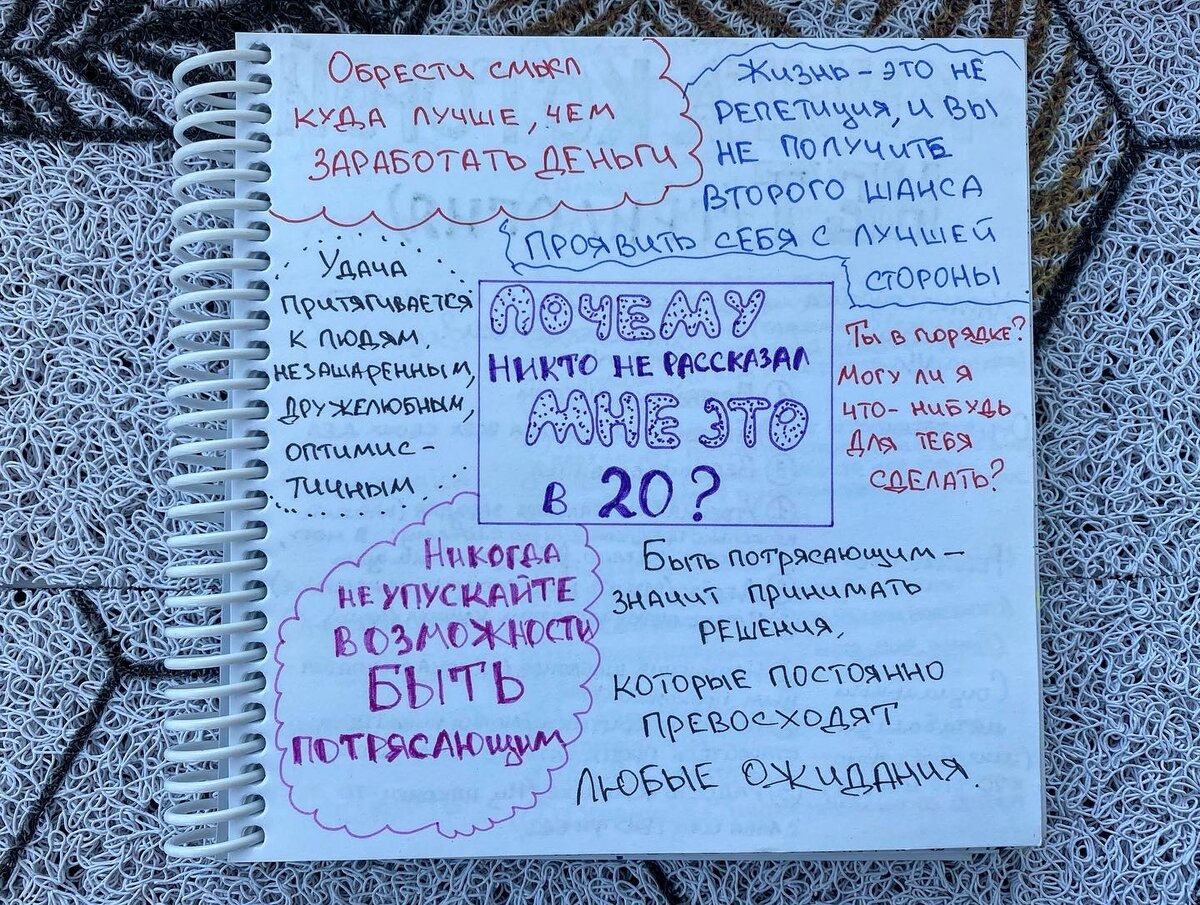 Обрести смысл
куда лучше, чем
заработать деньги
Жизнь - это не
репетиция, и вы
не получите
второго шанса
проявить себя с лучшей
стороны
Удача
притягивается
к людям,
незашаренным,
дружелюбным,
оптимис-
тичным
Почему
никто не рассказал
мне это
в 20?
Ты в порядке?
Могу ли я
что-нибудь
для тебя
сделать?
Никогда
не упускайте
возможности
быть
потрясающим
Быть потрясающим -
значит принимать
решения,
которые постоянно
превосходят
любые ожидания.